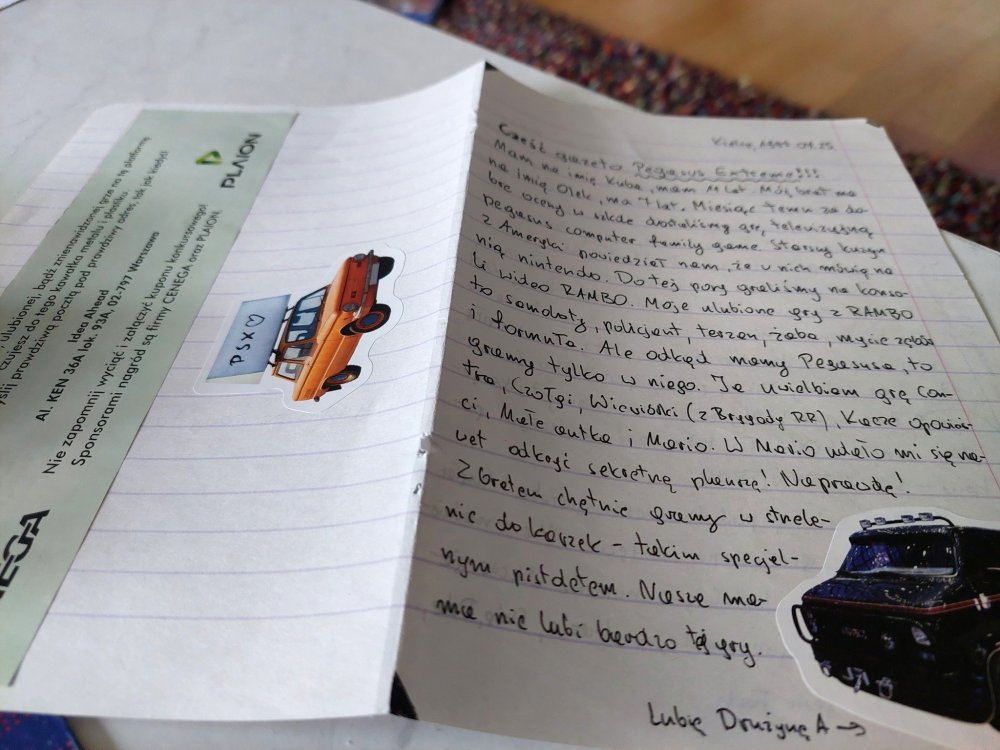 ulubionej, bądź znienawidzonej grze na tę platformę
czujesz do tego kawałka metalu i plastiku.
ślij prawdziwą pocztą pod prawdziwy adres, jak kiedyś
Idea Ahead
Al. KEN 36A lok. 93A, 02-797 Warszawa
Nie zapomnij wyciąć i załączyć kuponu konkursowego!
Sponsorami nagród są firmy CENEGA oraz PLAION
PLAION
PSX
Cześć gazeto Pegasus Extreme!!!
Mam na imię Kuba, mam 11 lat. Mój brat ma
na imię Olek, ma 7 lat. Miesiąc temu za do-
bre oceny w szkole dostaliśmy grę telewizyjną
Pegasus computer family game. Starszy kuzyn
z Ameryki powiedział nam, że u nich mówią na
nią nintendo. Do tej pory graliśmy na konso-
li wideo RAMBO. Moje ulubione gry z RAMBO
to samoloty, policjant, terzan, żaba, mycie zębów
i formuła. Ale odkąd mamy Pegasusa, to
gramy tylko w niego. Ja uwielbiam grę Con-
tra, Czołgi, Wiewiórki (z Brygady RR), Kacze opowieś-
ci, Małe autka i Mario. W Mario udało mi się na-
wet odkryć sekretną planszę! Naprawdę!
Z bratem chętnie gramy w strzela-
nie do kaczek - takim specjal-
nym pistoletem. Nasza ma-
ma nie lubi bardzo tej gry.
Lubię Drużynę A →